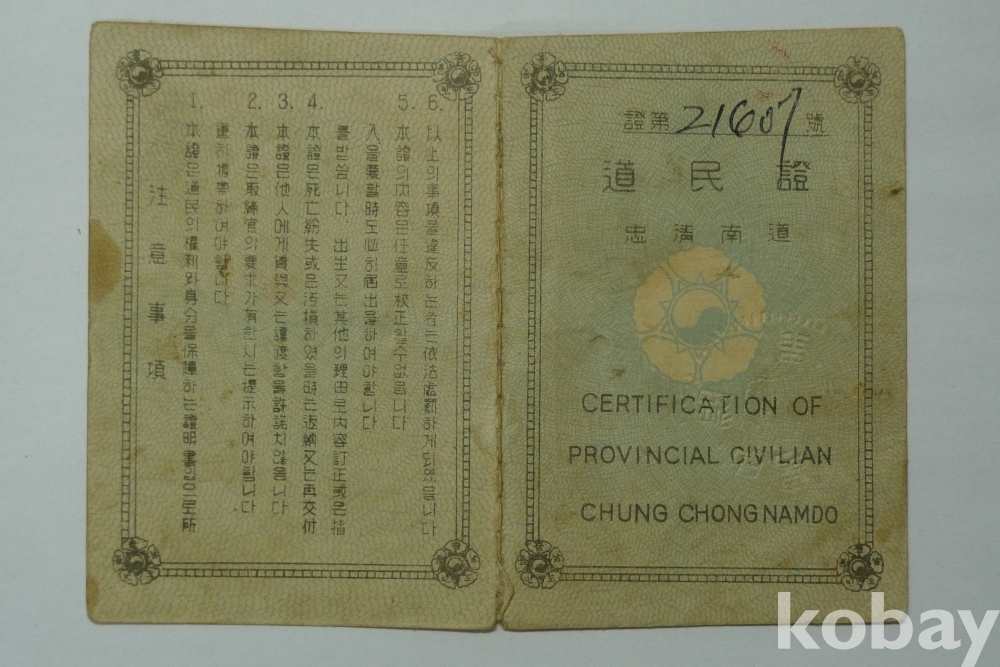 注意事項
1. 本證은道民의權利와身分을保障하는證明書임으로所
重히携帶하여야합니다
2. 本證은取締官의要求가有한시는提示하여야합니다
3. 本證은他人에게貸與又는讓渡함을許諾치않음니다
4. 本證은死亡紛失或은汚損하였을時는返納又는再交付
를받씀니다. 出生又는其他의理由로內容訂正或은揷
入을要할時도必히届出을하여야합니다
5. 本證의內容은任意로校正할수없음니다
6. 以上의事項을違反하는者는依法處罰하게되였음니다
證第21607號
道民證
忠淸南道
CERTIFICATION OF
PROVINCIAL CIVILIAN
CHUNG CHONG NAMDO
kobay